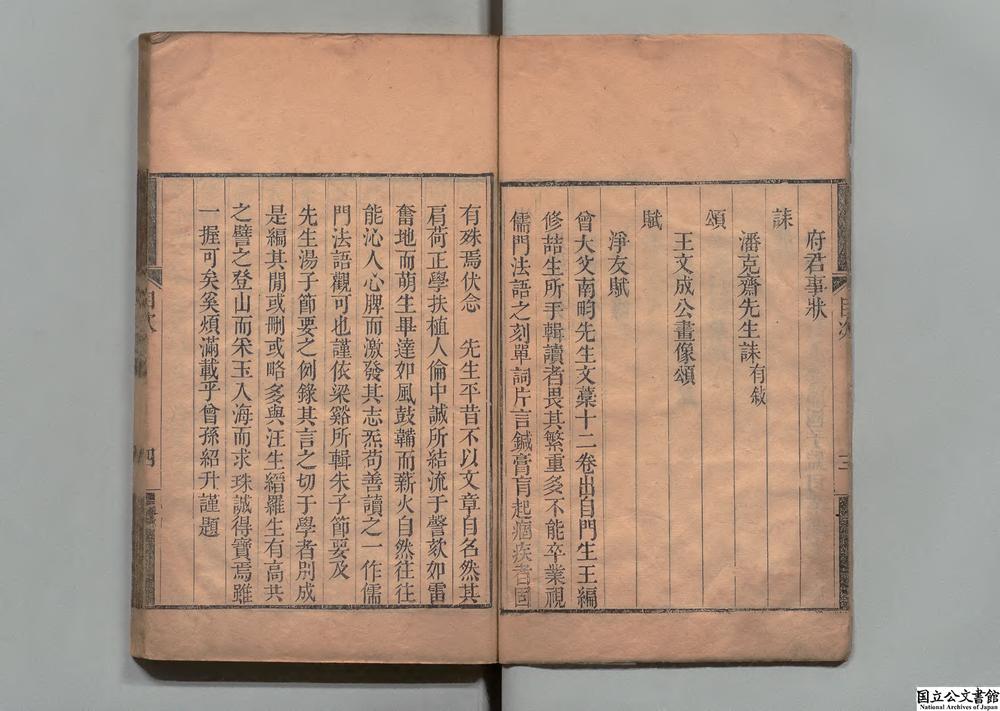 府君事狀
誄
潘克齋先生誄有敍
頌
王文成公畫像頌
賦
淨友賦
曾大父南畇先生文藁十二卷出自門生王編
修喆生所手輯讀者畏其繁重多不能卒業視
儒門法語之刻單詞片言鍼膏肓起痼疾者固
目次
三
有殊焉伏念　先生平昔不以文章自名然其
肩荷正學扶植人倫中誠所結流于謦欬如雷
奮地而萌生畢達如風鼓鞴而薪火自然往往
能沁人心脾而激發其志炁苟善讀之一作儒
門法語觀可也謹依梁谿所輯朱子節要及
先生湯子節要之例錄其言之切于學者別成
是編其閒或刪或略多與汪生縚羅生有高共
之譬之登山而采玉入海而求珠誠得寶焉雖
一握可矣奚煩滿載乎曾孫紹升謹題
目次
四
国立公文書館
National Archives of Japan